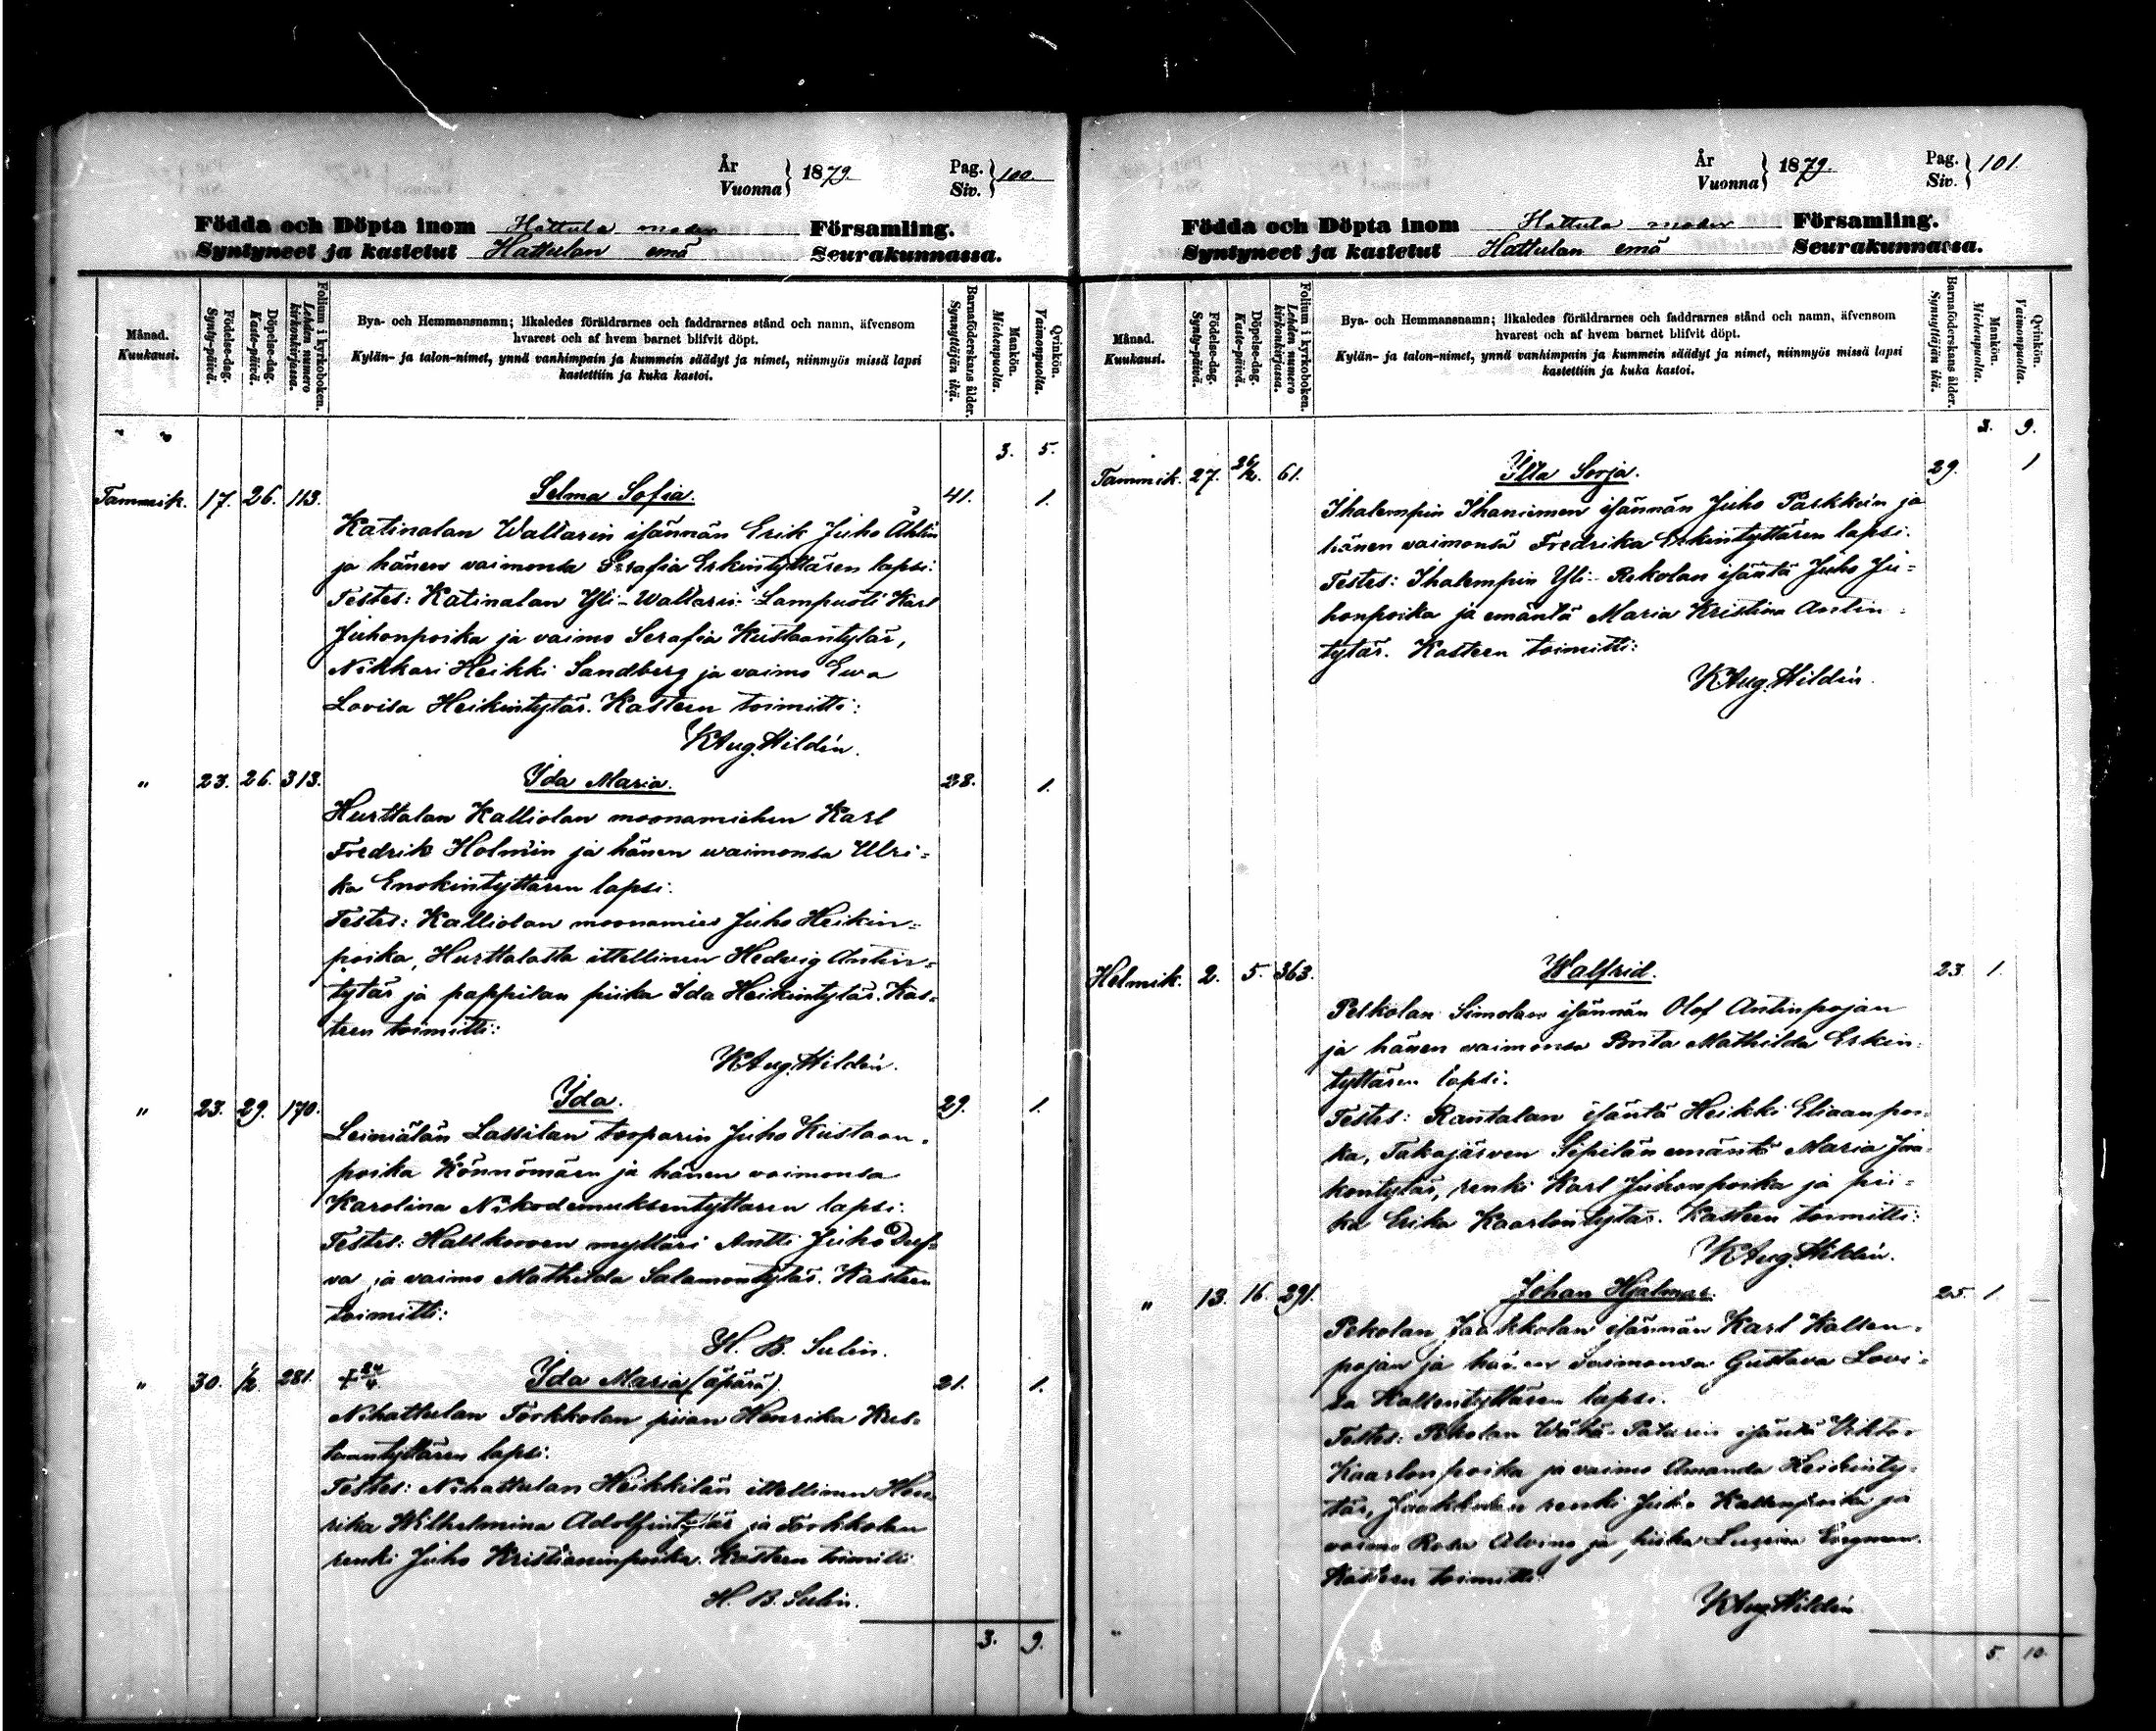 År
Vuonna } 1879.
Pag.
Siv. } 100.
Födda och Döpta inom Hattula moder Församling.
Syntyneet ja kastetut Hattulan emä Seurakunnassa.
Månad.
Kuukausi.
Födelse-dag.
Synty-päivä.
Döpelse-dag.
Kaste-päivä.
Folium i kyrkoboken.
Lehden numero kirkonkirjassa.
Bya- och Hemmansnamn; likaledes föräldrarnes och faddrarnes stånd och namn, äfvensom
hvarest och af hvem barnet blifvit döpt.
Kylän- ja talon-nimet, ynnä vanhimpain ja kummein säädyt ja nimet, niinmyös missä lapsi
kastettiin ja kuka kastoi.
Barnaföderskans ålder.
Synnyttäjän ikä.
Mankön.
Miehenpuolta.
Qvinkön.
Vaimonpuolta.
" "
3. 5.
Tammik. 17. 26. 113. Selma Sofia. 41. 1.
Katinalan Wallarin isännän Erik Juho Åhlin
ja hänen vaimonsa Serafia Erkintyttären lapsi:
Testes: Katinalan Yli-Wallarin Lampuoti Karl
Juhonpoika ja vaimo Serafia Kustaantytär,
Nikkari Heikki Sandberg ja vaimo Ewa
Lovisa Heikintytär. Kasteen toimitti:
K Aug. Hildén.
" 23. 26. 313. Ida Maria. 28. 1.
Hurttalan Kalliolan moonamiehen Karl
Fredrik Holmin ja hänen waimonsa Ulri=
ka Enokintyttären lapsi.
Testes: Kalliolan moonamies Juho Heikin=
poika, Hurttalasta ittellinen Hedvig Antin=
tytär ja pappilan piika Ida Heikintytär. Kas=
teen toimitti:
K Aug. Hildén.
" 23. 29. 170. Ida. 29. 1.
Leiniälän Lassilan torparin Juho Kustaan=
poika Könnömäen ja hänen vaimonsa
Karolina Nikodemuksentyttären lapsi.
Testes: mylläri Antti Juho
va ja vaimo Mathilda Salamontytär. Kasteen
toimitti:
H. B. Sulin.
" 30. 1/2 281. + 24/4. Ida Maria (äpärä) 21. 1.
Nihattulan Torkkolan piian Henrika Kus=
taantyttären lapsi.
Testes: Nihattulan Heikkilän ittellinen Hen=
rika Wilhelmina Adolfintytär ja Torkkolan
renki Juho Kristianinpoika. Kasteen toimitti
H. B. Sulin.
3. 9.
År
Vuonna } 1879.
Pag.
Siv. } 101.
Födda och Döpta inom Hattula moder Församling.
Syntyneet ja kastetut Hattulan emä Seurakunnassa.
Månad.
Kuukausi.
Födelse-dag.
Synty-päivä.
Döpelse-dag.
Kaste-päivä.
Folium i kyrkoboken.
Lehden numero kirkonkirjassa.
Bya- och Hemmansnamn; likaledes föräldrarnes och faddrarnes stånd och namn, äfvensom
hvarest och af hvem barnet blifvit döpt.
Kylän- ja talon-nimet, ynnä vanhimpain ja kummein säädyt ja nimet, niinmyös missä lapsi
kastettiin ja kuka kastoi.
Barnaföderskans ålder.
Synnyttäjän ikä.
Mankön.
Miehenpuolta.
Qvinkön.
Vaimonpuolta.
3. 9.
Tammik. 27. 26/2. 61. Ilta Sorja. 29. 1
Ihalempin Ihaniemen isännän Juho Parkkein ja
hänen vaimonsa Fredrika Erkintyttären lapsi.
Testes: Ihalempin Yli-Rekolan isäntä Juho Ju=
honpoika ja emäntä Maria Kristina Antin=
tytär. Kasteen toimitti:
K Aug. Hildén.
Helmik. 2. 5. 363. Walfrid. 23. 1.
Pelkolan Simolan isännän Olof Antinpojan
ja hänen vaimonsa Brita Mathilda Erkin=
tyttären lapsi.
Testes: Rantalan isäntä Heikki Eliaanpoi=
ka, Takajärven Sipilän emäntä Maria Jaa=
kontytär, renki Karl Juhonpoika ja pii=
ka Erika Kaarlontytär. Kasteen toimitti:
K Aug. Hildén.
" 13. 16. 291. Johan Hjalmar. 25. 1.
Pekolan Jaakkolan isännän Karl Kallen=
pojan ja hänen vaimonsa Gustava Lovi=
sa Kallentyttären lapsi.
Testes: Pekolan Wähä-Paturin isäntä Viktor
Kaarlonpoika ja vaimo Amanda Heikinty=
tär, Jaakkolan renki Juho Kallenpoika ja
vaimo Rosa Alvina ja piika
Kasteen toimitti:
K Aug. Hildén
"
5. 10.